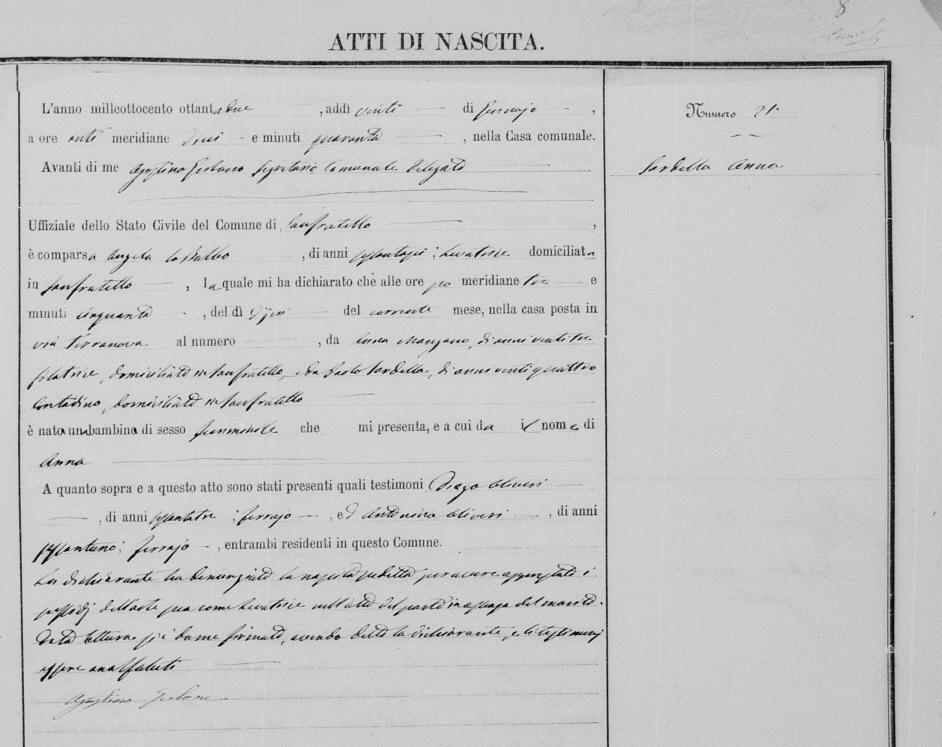 8
ATTI DI NASCITA.
L'anno milleottocento ottantadue, addì venti di Gennajo,
a ore anti meridiane dieci e minuti quaranta, nella Casa comunale.
Avanti di me Agostino Segretario Comunale Delegato
Uffiziale dello Stato Civile del Comune di Sanfratello,
è comparsa Angela Lo Balbo, di anni sessantasei; Levatrice domiciliata
in Sanfratello, la quale mi ha dichiarato che alle ore po meridiane tre e
minuti cinquanta, del dì dieci del corrente mese, nella casa posta in
via Terranova al numero, da Anna Mangano, di anni ventitre
filatrice, domiciliata in Sanfratello, e da Basto Sardella, di anni ventiquattro
Contadino, domiciliato in Sanfratello
è nata una bambina di sesso femminile che mi presenta, e a cui da il nome di
Anna
A quanto sopra e a questo atto sono stati presenti quali testimoni Diego Oliveri
, di anni sessantatre; ferrajo, ed Antonino Oliveri, di anni
sessantuno; ferrajo, entrambi residenti in questo Comune.
La dichiarante ha denunziato la nascita suddetta per avere apprestato i
sussidj dell'arte sua come Levatrice nell'atto del parto in assenza del marito.
Data lettura si è da me firmato, avendo detto la dichiarante, e li testimonj
essere analfabeti
Agostino
Numero 21
Sardella Anna